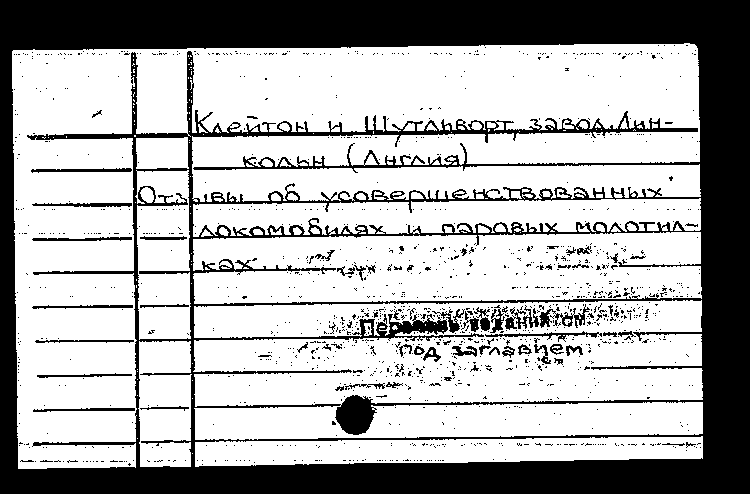 Клейтон и Шутльворт, завод. Лин-
кольн (Англия)
Отзывы об усовершенствованных
локомобилях и паровых молотил-
ках...
Перечень изданий см.
под заглавием: